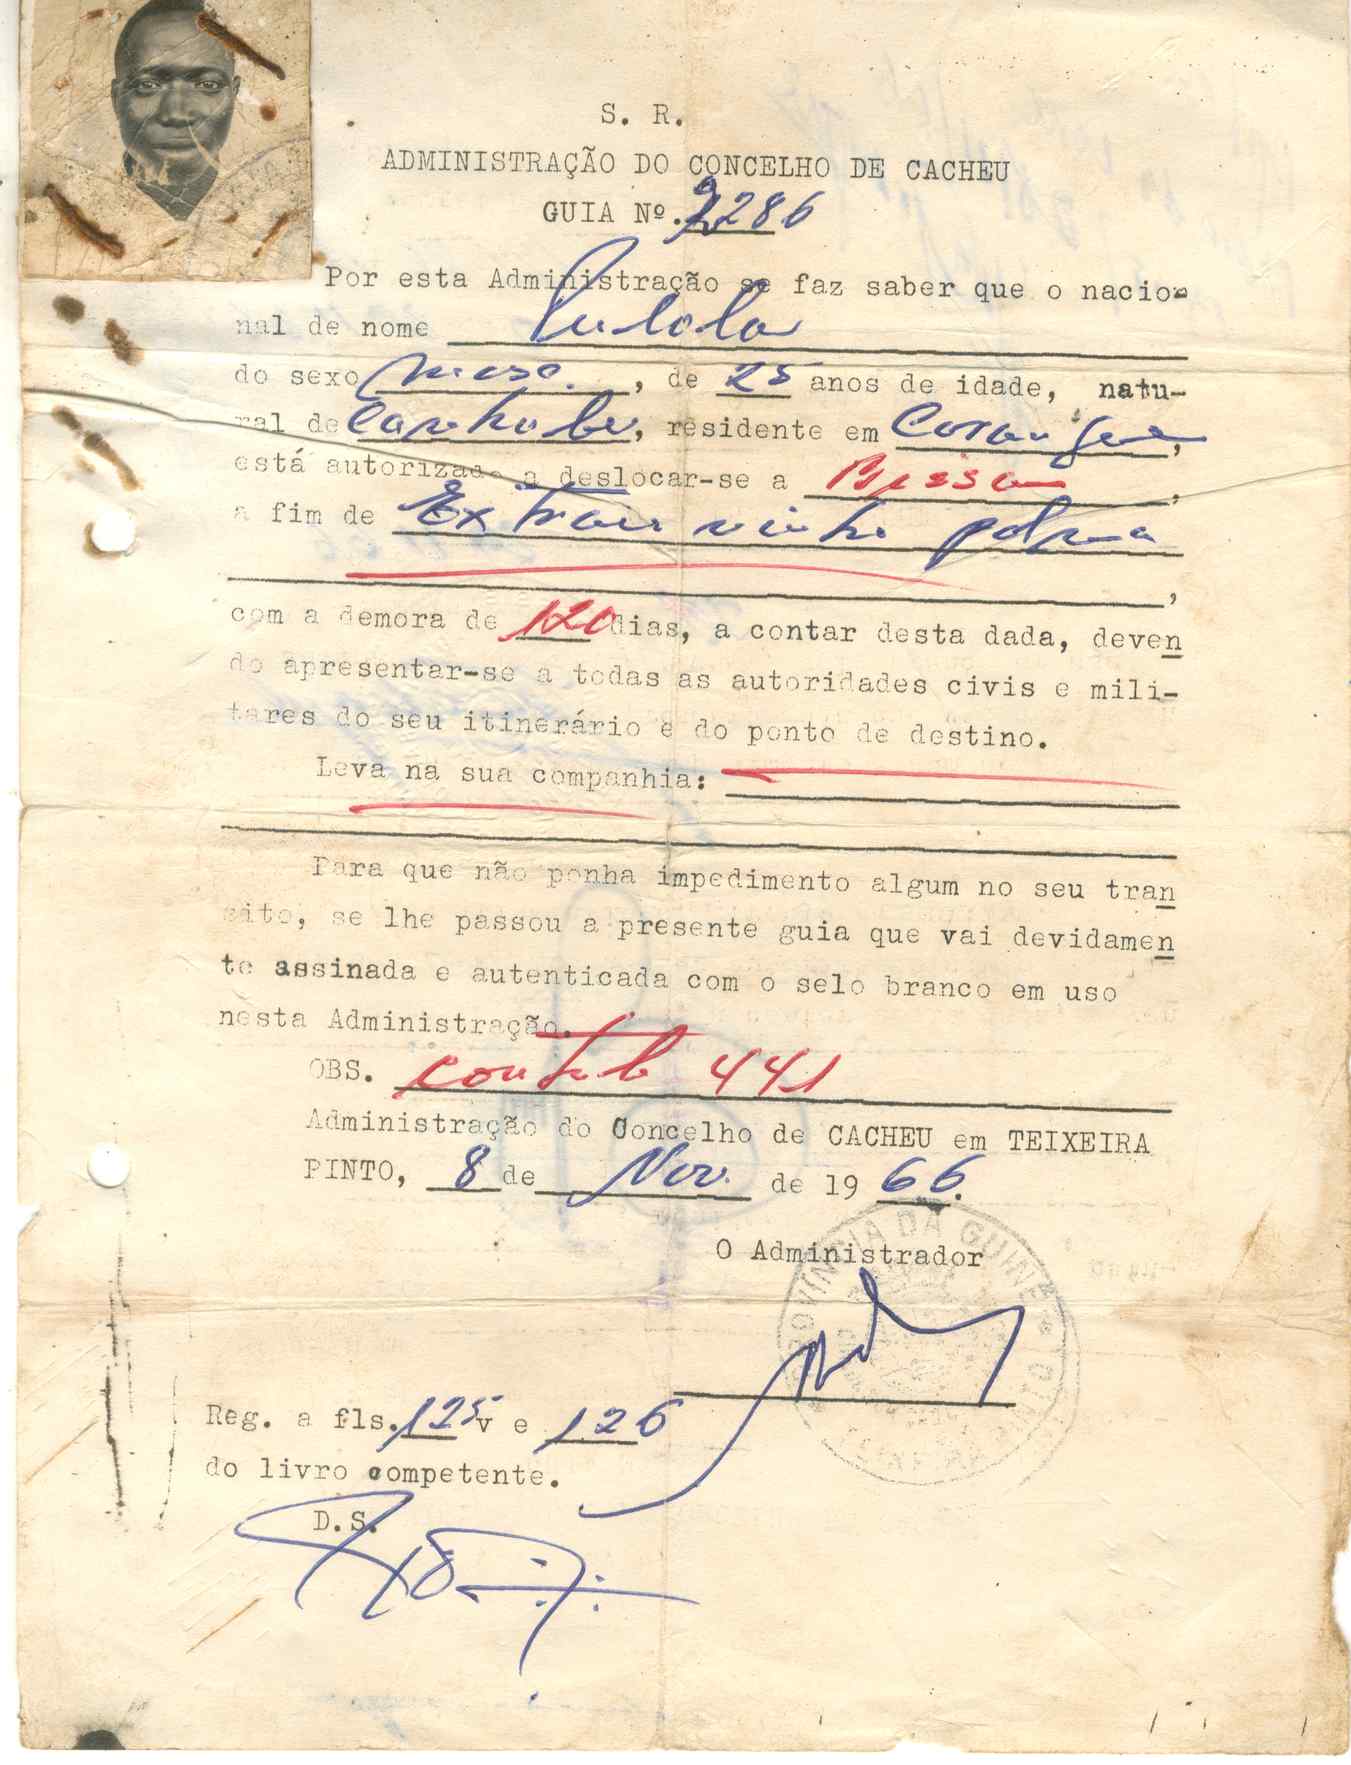 S. R.
ADMINISTRAÇÃO DO CONCELHO DE CACHEU
GUIA Nº. 2286
Por esta Administração se faz saber que o nacio-
nal de nome
do sexo masc., de 25 anos de idade, natu-
ral de Canhobe, residente em
está autorizado a deslocar-se a Bissau,
a fim de Extrair vinho palma
,
com a demora de 120 dias, a contar desta dada, deven
do apresentar-se a todas as autoridades civis e mili-
tares do seu itinerário e do ponto de destino.
Leva na sua companhia:
Para que não ponha impedimento algum no seu tran
sito, se lhe passou a presente guia que vai devidamen
te assinada e autenticada com o selo branco em uso
nesta Administração.
OBS. 441
Administração do Concelho de CACHEU em TEIXEIRA
PINTO, 8 de Nov. de 19 66.
O Administrador
PROVINCIA DA GUINÉ
Reg. a fls. 125 v e 126
do livro competente.
D.S.